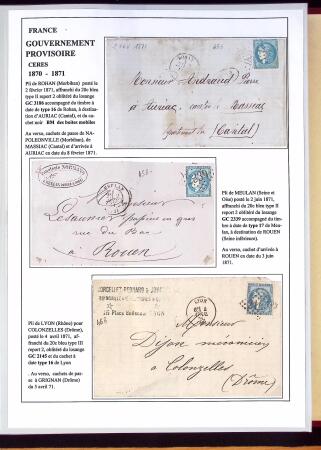 FRANCE
GOUVERNEMENT
PROVISOIRE
CERES
1870 - 1871
Pli de ROHAN (Morbihan) posté le
2 février 1871, affranchi du 20c bleu
type II report 2 oblitéré du losange
GC 3186 accompagné du timbre
à date de type 16 de Rohan, à destination
d'AURIAC (Cantal), et du cachet
noir BM des boîtes mobiles
Au verso, cachets de passe de NAPOLEONVILLE
(Morbihan), de
MASSIAC (Cantal) et d'arrivée à
AURIAC en date du 8 février 1871.
2 Fev 1871
Monsieur Andraud Pierre
à Auriac, canton de Massiac
département du Cantal
Pli de MEULAN (Seine et
Oise) posté le 2 juin 1871,
affranchi du 20c bleu type II
report 2 oblitéré du losange
GC 2339 accompagné du timbre
à date de type 17 de Meulan,
à destination de ROUEN
(Seine inférieure).
Au verso, cachet d'arrivée à
ROUEN en date du 3 juin
1871.
Monsieur
rue du Bac
Rouen
Pli de LYON (Rhône) pour
COLONZELLES (Drôme),
posté le 4 avril 1871, affranchi
du 20c bleu type III
report 2, oblitéré du losange
GC 2145 et du cachet à
date type 16 de Lyon
Au verso, cachets de passe
à GRIGNAN (Drôme) du
5 avril 71.
LYON
Monsieur
Dijon mécanicien
à Colonzelles
(Drôme)